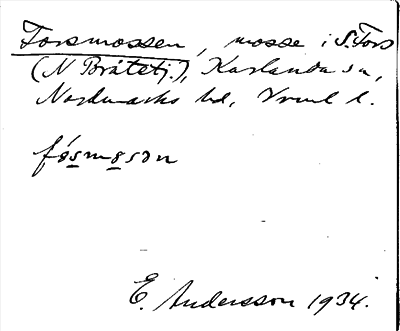 Forsmossen, mosse i S. Fors
(N Bråtetj.), Karlanda sn,
Nordmarks hd, Vrml l.
fɷsmɷsən
E. Andersson 1934.